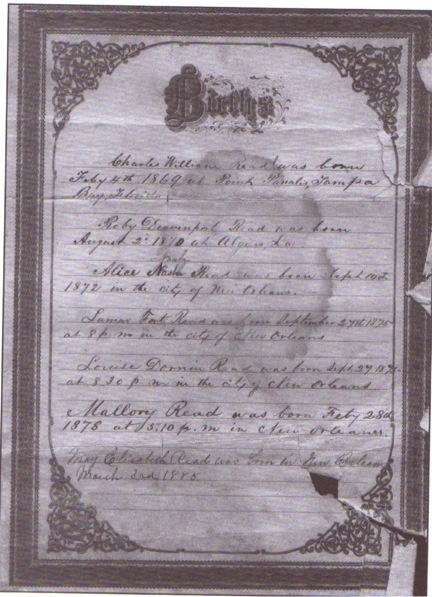 Births
Charles William Read was born
Feby 4th 1869 at Point Tampa
Bay, Florida
Roby Devenport Read was born
August 2d 1870 at La.
Alice Read was born Sept 10th
1872 in the city of New Orleans.
Lamar Fort Read was born September 27th 1875
at 8 p.m in the city of New Orleans
Louise Read was born Sept 27 1875
at 8.30 p.m. in the city of New Orleans.
Mallory Read was born Feby 28th
1878 at 5.10 p.m in New Orleans.
May Elizabeth Read was born in New Orleans
March 3rd 1885